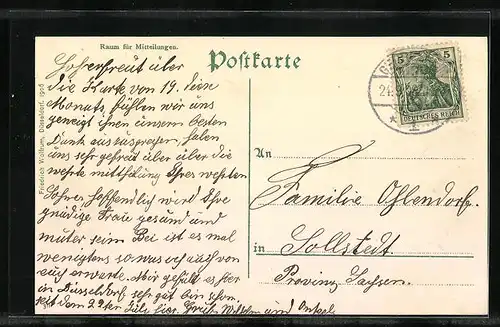 Raum für Mitteilungen.
Postkarte
Hocherfreut über
die Karte vom 19. diese
Monats, fühlen wir uns
geneigt Ihnen unsern besten
Dank auszusprechen, haben
uns sehr gefreut über über die
werte mittheilung Ihres werthen
Sohnes hoffendlich wird Ihre
gnädige Frau gesund und
munter sein Bei ist es mal
wenigstens so was
auch erwarte. Mir gefällt es hier
in Düsseldorf sehr gut bin schon
seit dem 22ten Juli hier. Gruß Wilhelm und
Friedrich Wolfrum, Düsseldorf. 1905
5 5
DEUTSCHES REICH
An
Familie Ohlendorf.
in Sollstedt.
Provinz Sachsen.